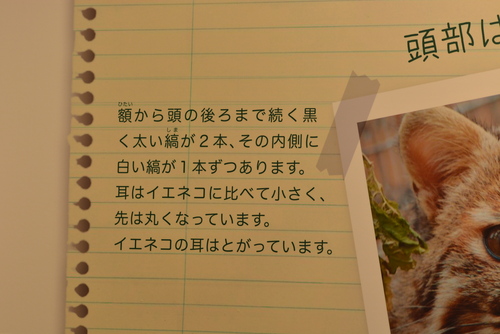 頭部は
額から頭の後ろまで続く黒
く太い縞が2本、その内側に
白い縞が1本ずつあります。
耳はイエネコに比べて小さく、
先は丸くなっています。
イエネコの耳はとがっています。
ひたい
しま